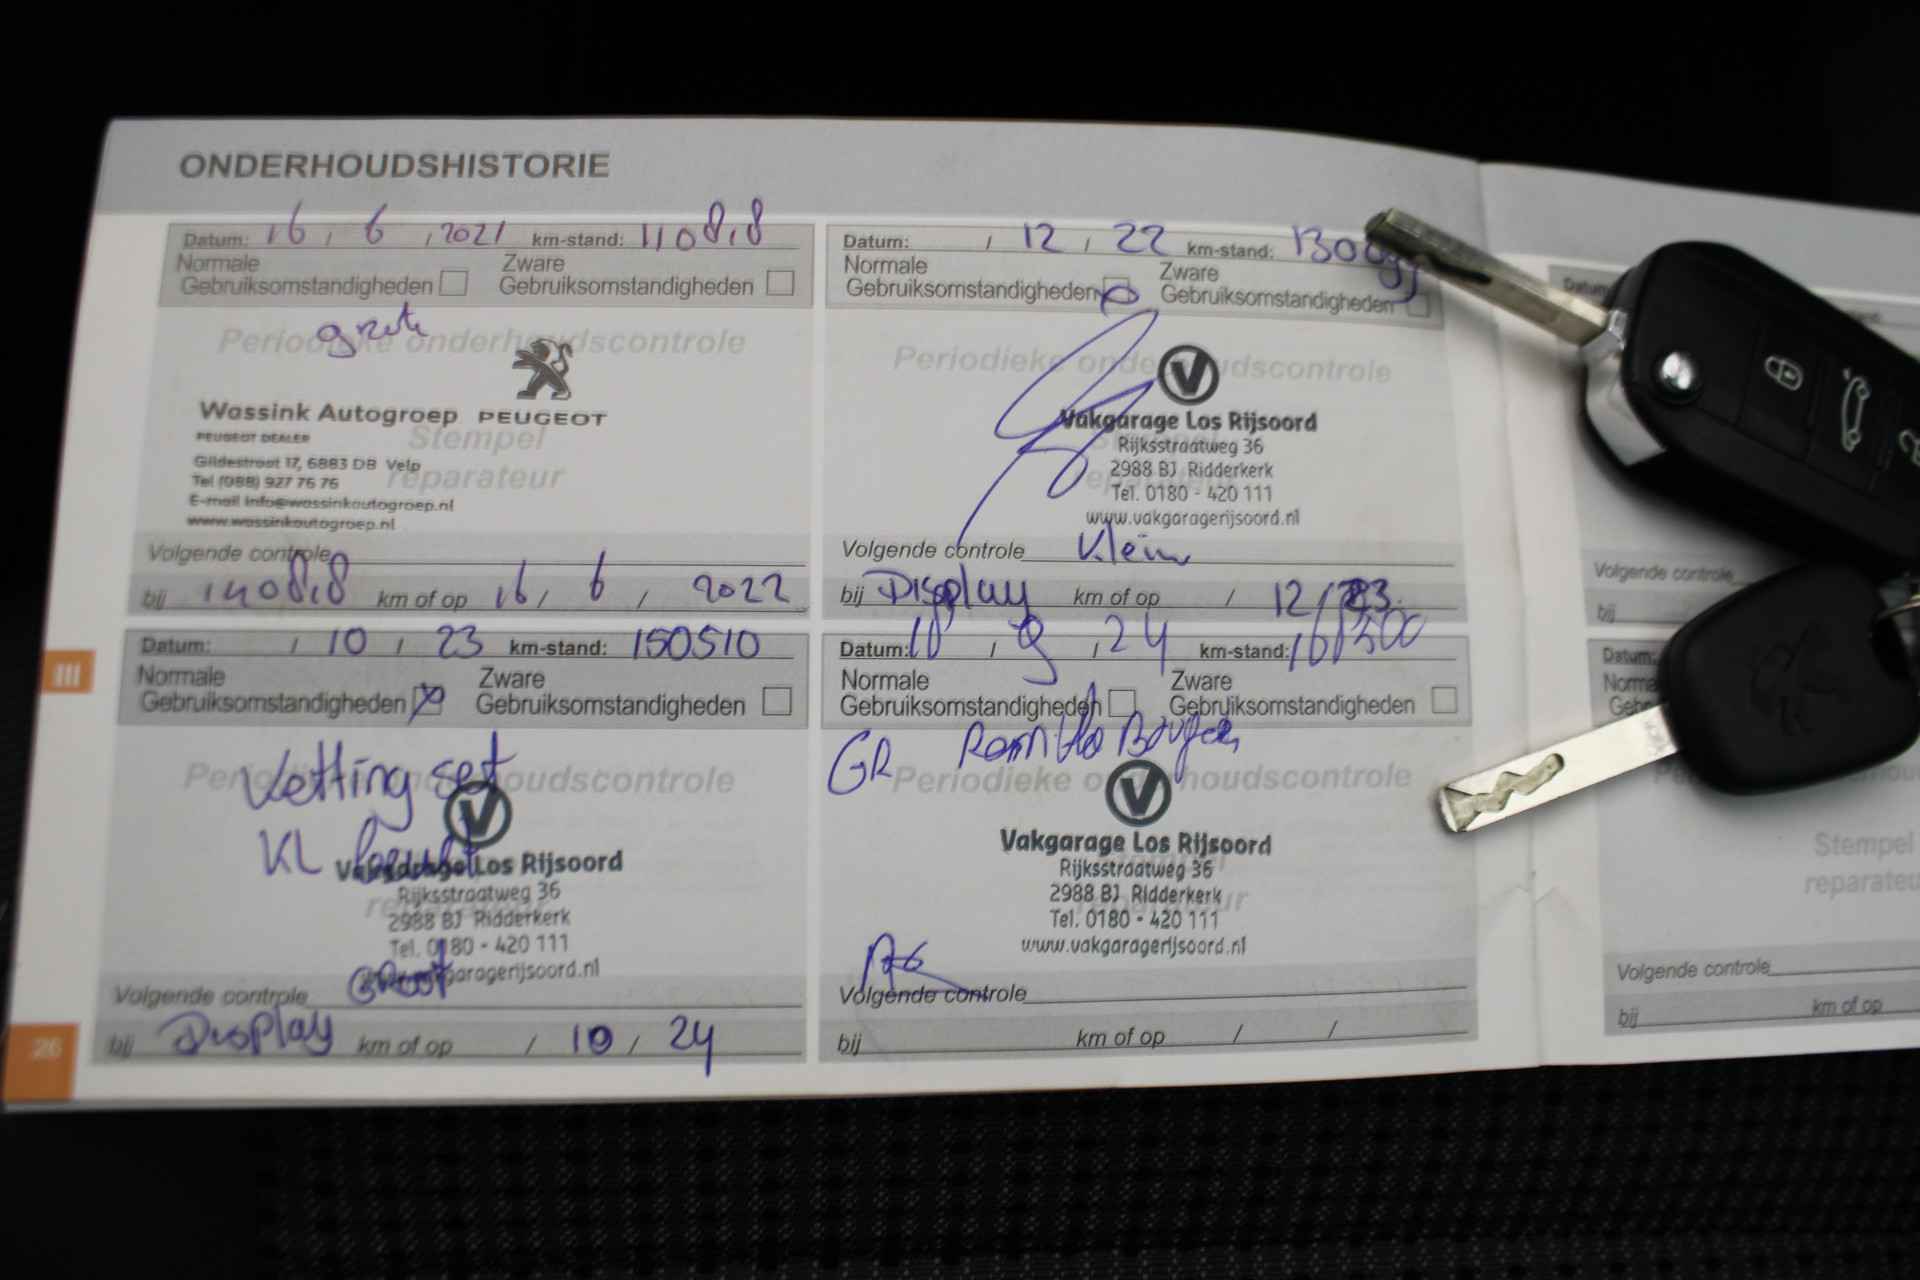 ONDERHOUDSHISTORIE
Datum: 16 / 6 / 2021 km-stand: 110818
Normale Gebruiksomstandigheden
Zware Gebruiksomstandigheden
Periodieke onderhoudscontrole
Wassink Autogroep PEUGEOT
PEUGEOT DEALER
Stempel reparateur
Gildestraat 17, 6883 DB Velp
Tel (088) 927 76 76
E-mail info@wassinkautogroep.nl
www.wassinkautogroep.nl
Volgende controle
bij 140818 km of op 16 / 6 / 2022
Datum: / 12 / 22 km-stand:
Normale Gebruiksomstandigheden
Zware Gebruiksomstandigheden
Periodieke onderhoudscontrole
Vakgarage Los Rijsoord
Rijksstraatweg 36
2988 BJ Ridderkerk
Tel. 0180 - 420 111
www.vakgaragerijsoord.nl
Volgende controle Klein
bij Display km of op / 12 / 23
Datum: / 10 / 23 km-stand: 150510
Normale Gebruiksomstandigheden
Zware Gebruiksomstandigheden
Periodieke onderhoudscontrole
Ketting set
KL beurt
Vakgarage Los Rijsoord
Rijksstraatweg 36
2988 BJ Ridderkerk
Tel. 0180 - 420 111
www.vakgaragerijsoord.nl
Volgende controle Groot
bij Display km of op / 10 / 24
Datum: / 9 / 24 km-stand:
Normale Gebruiksomstandigheden
Zware Gebruiksomstandigheden
GR
Periodieke onderhoudscontrole
Vakgarage Los Rijsoord
Rijksstraatweg 36
2988 BJ Ridderkerk
Tel. 0180 - 420 111
www.vakgaragerijsoord.nl
Volgende controle
bij km of op / /
III
26
Datum:
Volgende controle
bij
Datum:
Stempel
Volgende controle
bij km of op